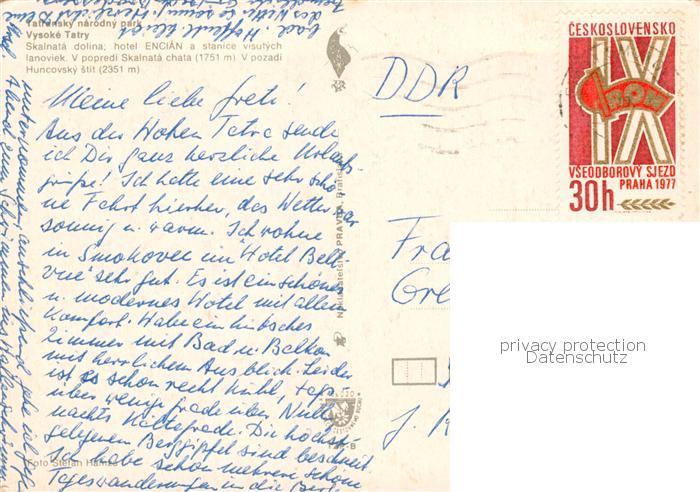 Tatranský národný park
Vysoké Tatry
Skalnatá dolina; hotel ENCIÁN a stanice visutých
lanoviek. V popredí Skalnatá chata (1751 m) V pozadí
Huncovský štít (2351 m)
Meine liebe Greti!
Aus der Hohen Tatra sende
ich Dir ganz herzliche Urlaubs-
grüße! Ich hatte eine sehr schö-
ne Fahrt hierher, das Wetter war
sonnig u. warm. Ich wohne
in Smokovec im "Hotel Belle-
vue" sehr gut. Es ist ein schönes
u. modernes Hotel mit allem
Komfort. Habe ein hübsches
Zimmer mit Bad u. Balkon
mit herrlichem Ausblick. Leider
ist es schon recht kühl, tags
über wenig Grade über Null
nachts Kältegrade. Die höchst
gelegenen Berggipfel sind beschneit.
Ich habe schon mehrere schöne
Tageswanderungen in die Berge
unternommen, anschließend gehe ich
Abend zum Schwimmen ins Hallenschwimm
DDR
Fra
Gre
ČESKOSLOVENSKO
IX
VŠEODBOROVÝ SJEZD
PRAHA 1977
30h
PRAVDA, Bratis
privacy protection
Datenschutz